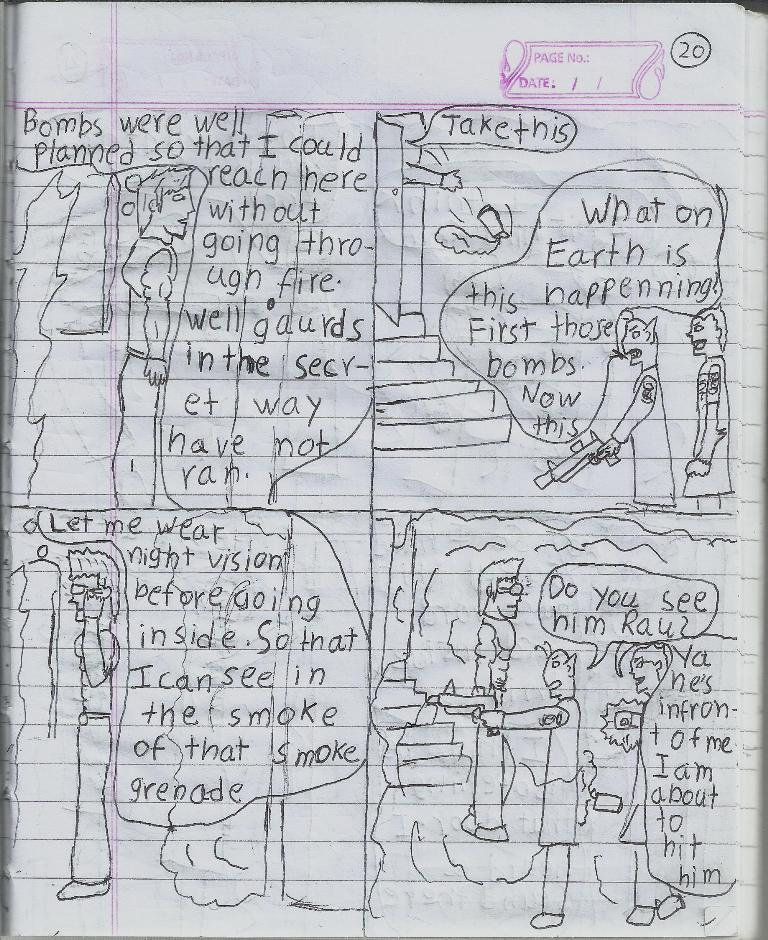 PAGE No.:
DATE: / /
20
Bombs were well
planned so that I could
reach here
without
going thro-
ugh fire.
Well gaurds
in the secr-
et way
have not
ran.
Take this
What on
Earth is
this happenning!
First those
bombs.
Now
this
Let me wear
night vision
before going
inside. So that
I can see in
the smoke
of that smoke
grenade
Do you see
him Rau?
Ya
he's
infron-
t of me
I am
about
to
hit
him